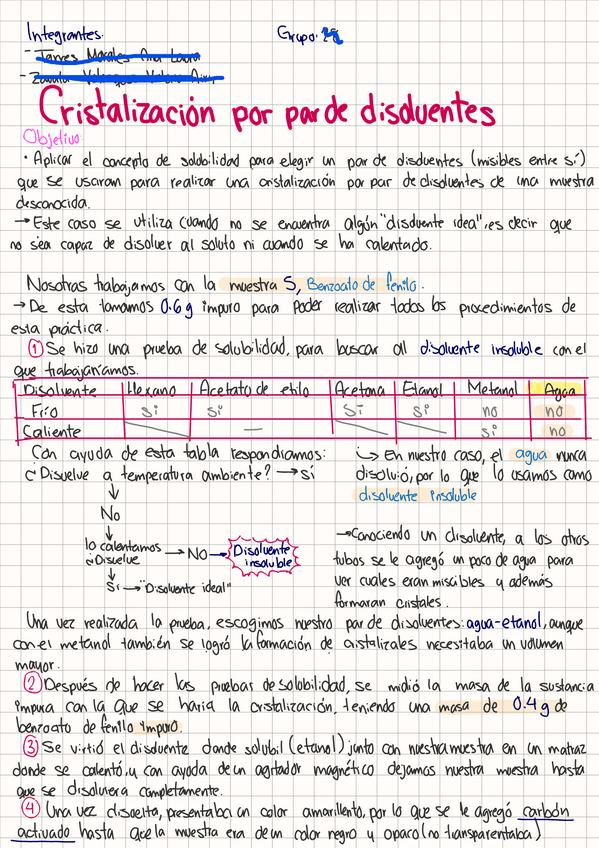 Integrantes:
Grupo:
Cristalización por par de disolventes
Objetivo:
· Aplicar el concepto de solubilidad para elegir un par de disolventes (misibles entre sí)
que se usaran para realizar una cristalización por par de disolventes de una muestra
desconocida.
→ Este caso se utiliza cuando no se encuentra algún "disolvente ideal", es decir que
no sea capaz de disolver al soluto ni cuando se ha calentado.
Nosotras trabajamos con la muestra 5, Benzoato de fenilo.
→ De esta tomamos 0.6 g impuro para poder realizar todos los procedimientos de
esta práctica.
① Se hizo una prueba de solubilidad, para buscar al disolvente insoluble con el
que trabajaríamos.
Disolvente Hexano Acetato de etilo Acetona Etanol Metanol Agua
Frío si si si si no no
Caliente — si no
Con ayuda de esta tabla respondíamos:
¿Disuelve a temperatura ambiente? → sí
No
lo calentamos → NO → Disolvente insoluble
¿Disuelve
Si → "Disolvente ideal"
↳ En nuestro caso, el agua nunca
disolvió, por lo que lo usamos como
disolvente insoluble
→ Conociendo un disolvente, a los otros
tubos se le agregó un poco de agua para
ver cuales eran miscibles y además
formaran cristales.
Una vez realizada la prueba, escogimos nuestro par de disolventes: agua-etanol, aunque
con el metanol también se logró la formación de cristalizales necesitaba un volumen
mayor.
② Después de hacer las pruebas de solubilidad, se midió la masa de la sustancia
impura con la que se haría la cristalización, teniendo una masa de 0.4 g de
benzoato de fenilo impuro.
③ Se virtió el disolvente donde solubil (etanol) junto con nuestra muestra en un matraz
donde se calentó, y con ayuda de un agitador magnético dejamos nuestra muestra hasta
que se disolviera completamente.
④ Una vez disuelta, presentaba un color amarillento, por lo que se le agregó carbón
activado hasta que la muestra era de un color negro y opaco (no transparentaba)